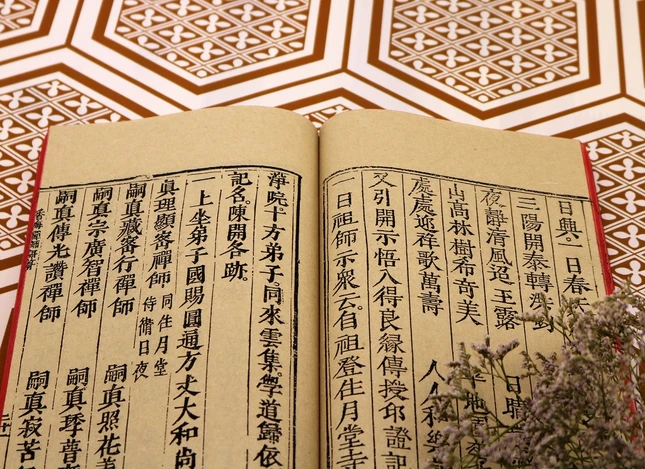 日興。一日春
三陽開泰轉洪鈞
夜靜清風迢玉露 日晴
山高林樹希奇美 地
處處遊祥歌萬壽 人人和樂
又引開示悟入得良緣傳授印證記
日祖師示衆云。自祖登住月堂寺
淨院十方弟子。同來雲集。學道歸依
記名。陳開各跡。
上坐弟子國賜圓通方丈大和尚
眞理顯審禪師 同住月堂 侍衛日夜
嗣眞藏審行禪師 嗣眞照花
嗣眞宗廣眉禪師 嗣眞琫普
嗣眞傳光讚禪師 嗣眞寂苦